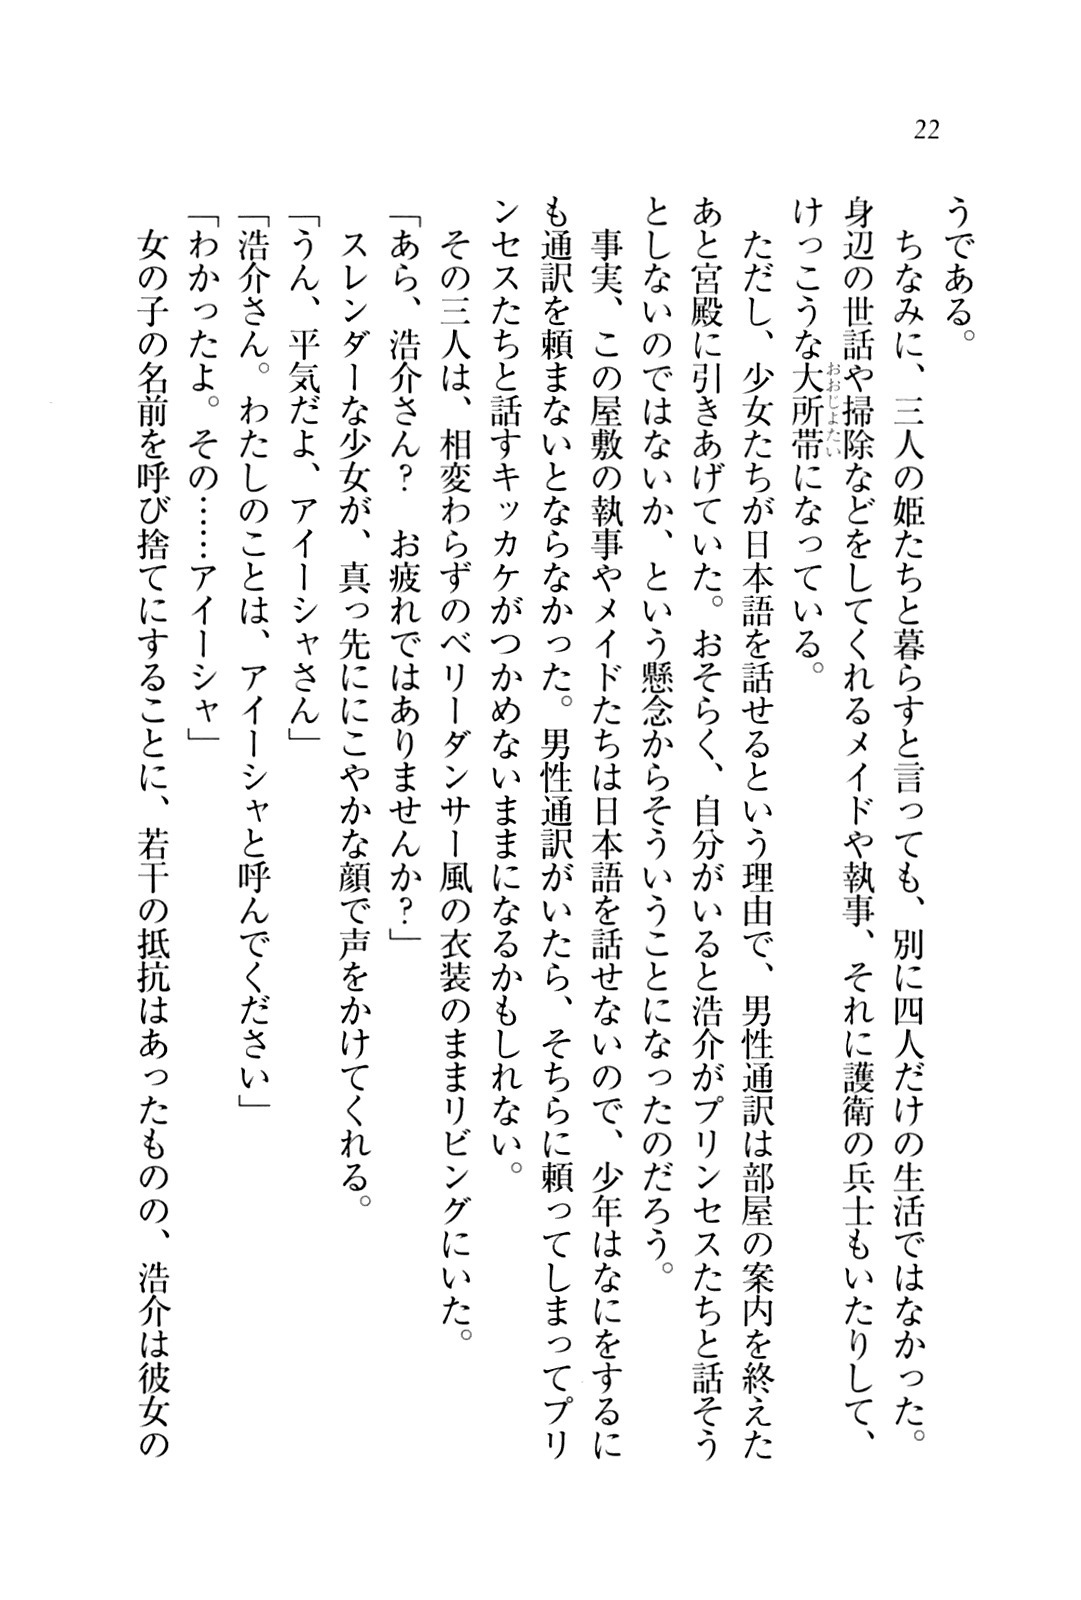 22
うである。
ちなみに、三人の姫たちと暮らすと言っても、別に四人だけの生活ではなかった。
身辺の世話や掃除などをしてくれるメイドや執事、それに護衛の兵士もいたりして、
けっこうな大所帯になっている。
おおじょたい
ただし、少女たちが日本語を話せるという理由で、男性通訳は部屋の案内を終えた
あと宮殿に引きあげていた。おそらく、自分がいると浩介がプリンセスたちと話そう
としないのではないか、という懸念からそういうことになったのだろう。
事実、この屋敷の執事やメイドたちは日本語を話せないので、少年はなにをするに
も通訳を頼まないとならなかった。男性通訳がいたら、そちらに頼ってしまってプリ
ンセスたちと話すキッカケがつかめないままになるかもしれない。
その三人は、相変わらずのベリーダンサー風の衣装のままリビングにいた。
「あら、浩介さん？　お疲れではありませんか？」
スレンダーな少女が、真っ先ににこやかな顔で声をかけてくれる。
「うん、平気だよ、アイーシャさん」
「浩介さん。わたしのことは、アイーシャと呼んでください」
「わかったよ。その……アイーシャ」
女の子の名前を呼び捨てにすることに、若干の抵抗はあったものの、浩介は彼女の